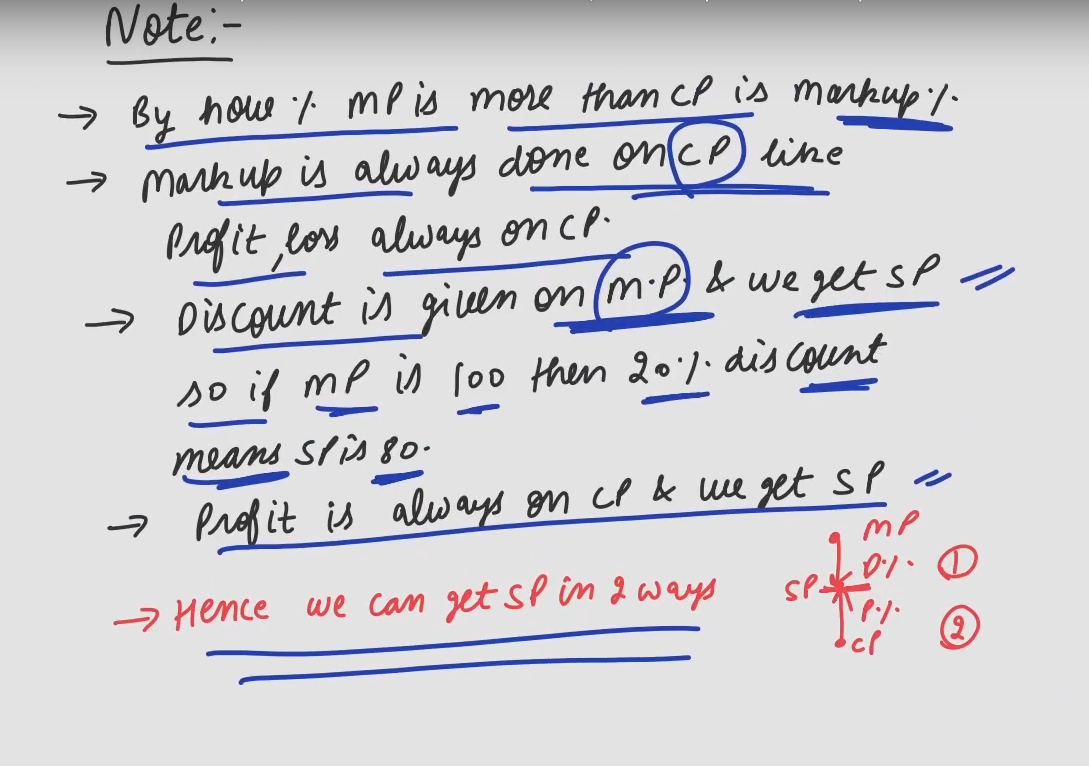 Note:-
→ By how % MP is more than CP is markup%.
→ Markup is always done on CP like
Profit, loss always on CP.
→ Discount is given on M.P. & we get SP
so if MP is 100 then 20% discount
means SP is 80.
→ Profit is always on CP & we get SP
→ Hence we can get SP in 2 ways
MP
D%. ①
SP
P%. ②
CP